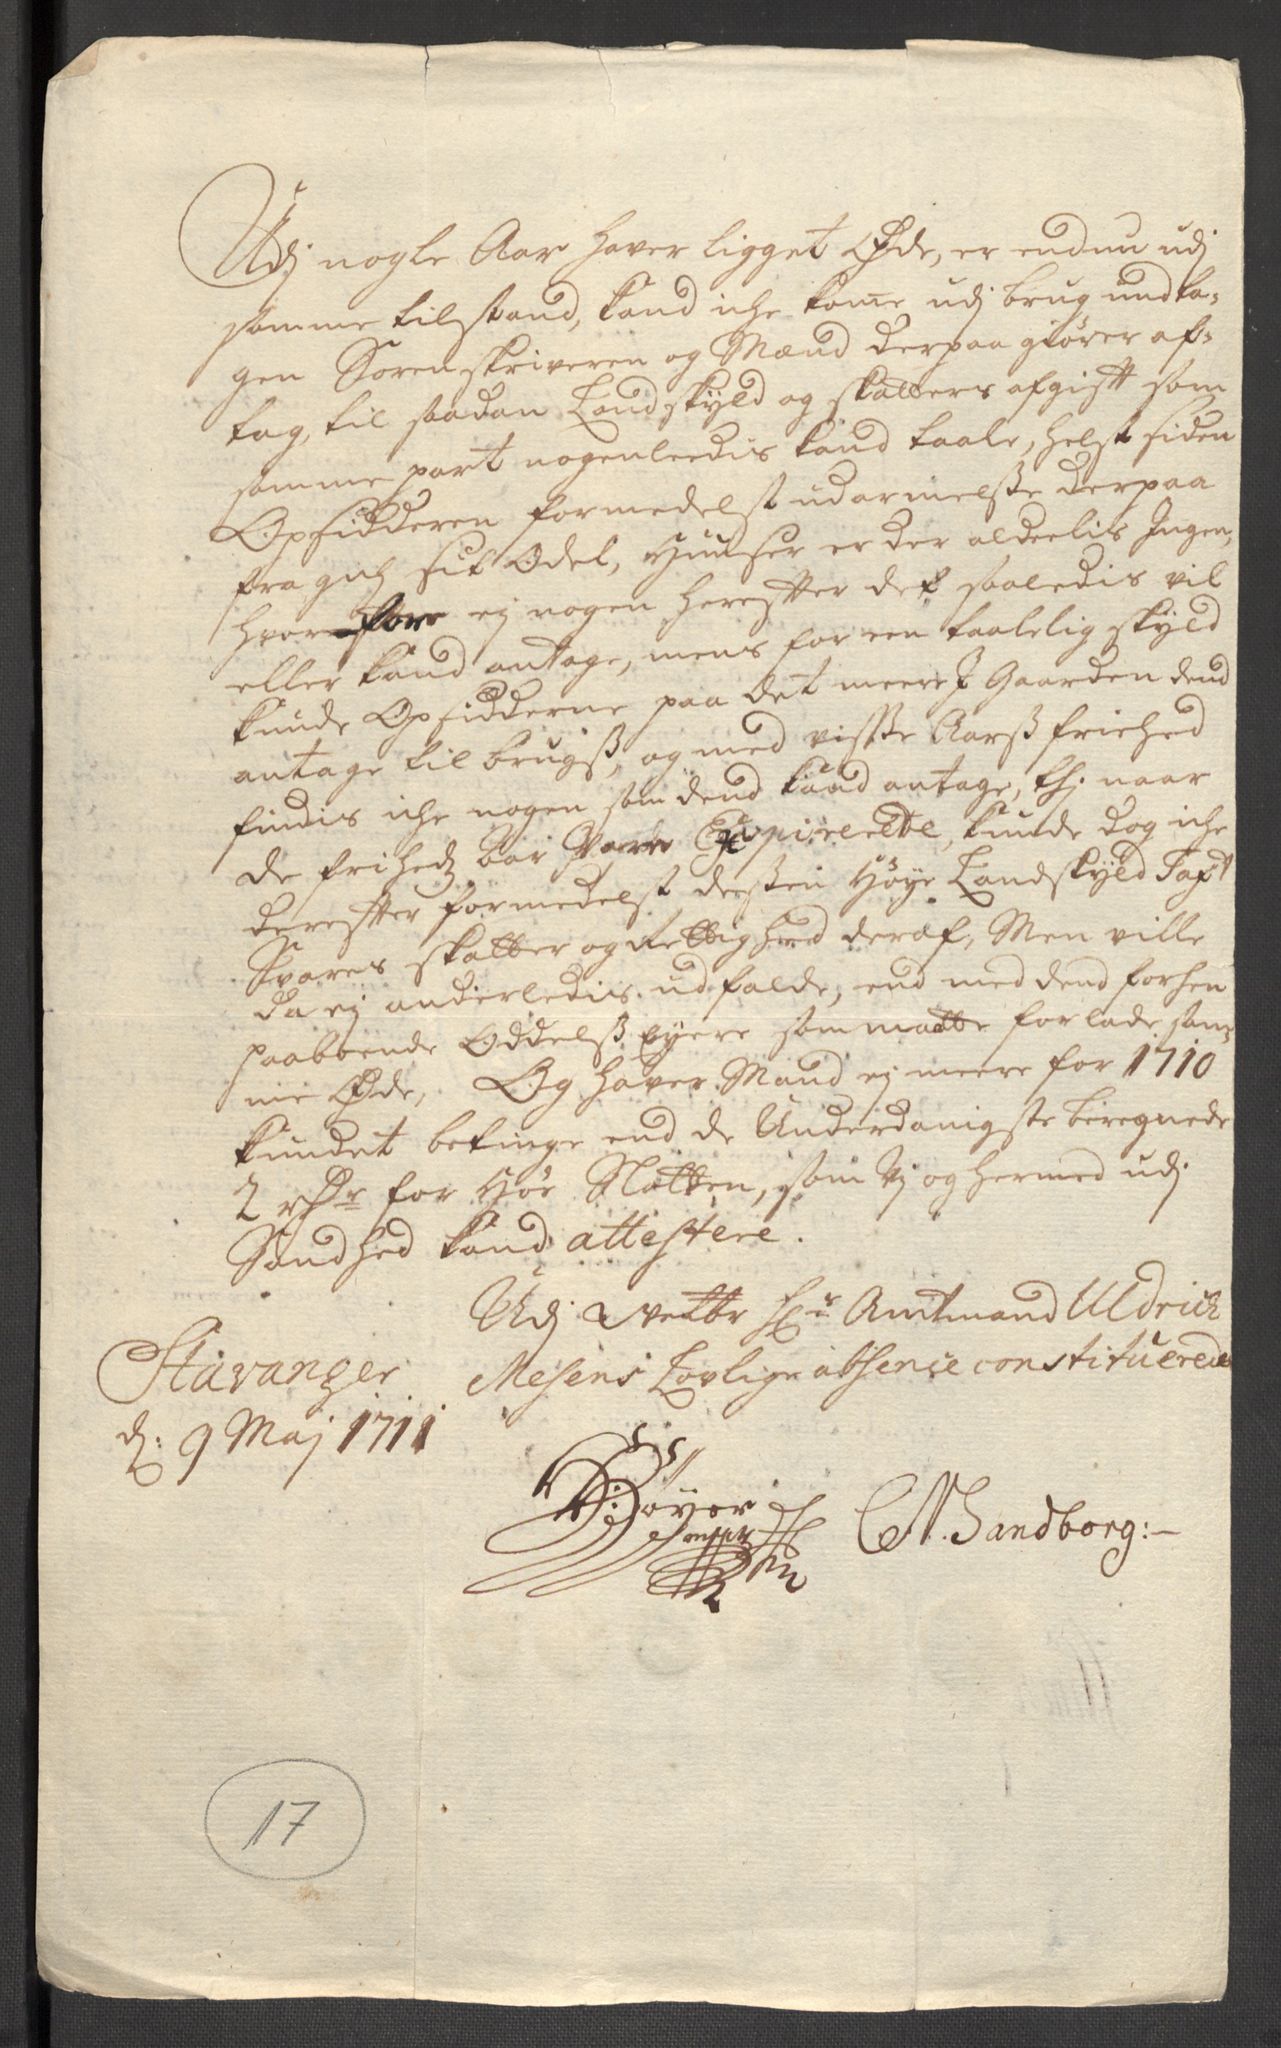 Udj nogle Aar haver ligget Øde, er endnu udj
samme tilstand, kand iche kome udj brug undta-
gen Sorenskriveren og Mænd derpaa giører af-
tag, til saadan Landskyld og skatters afgifft som
samme part nogenleedis kand taale, helst siden
Opsidderen formedelst udarmelsse derpaa
fragik sit Odel, Huuser er der aldeelis Ingen,
hvorfore ej nogen herefter det saaledis vil
eller kand antage, mens for een taalelig skyld
kunde Opsidderne paa det meere J Gaarden dend
antage til brugs, og med visse Aars friehed
findis iche nogen som dend kand antage, thj naar
de friheds Aar vare Expireerede, kunde dog iche
derefter formedelst dessen Høye Landskyld
Svares skatter og rettighed deraf, Men ville
da ej anderledis udfalde, end med dend forhen
paaboende Oddelss Eyere som matte forlade sam-
me Øde, Og haver Mand ej meere for 1710
kundet betinge end de Underdanigste beregnede
2 rdr for Høe Slatten, som Vj og hermed udj
Sandhed kand attestere.
Udj Hr Amtmand Uldrich
Mesens Lovlige absence constituerede
Stavanger
d: 9 Maj 1711
CN. Sandborg:-
17